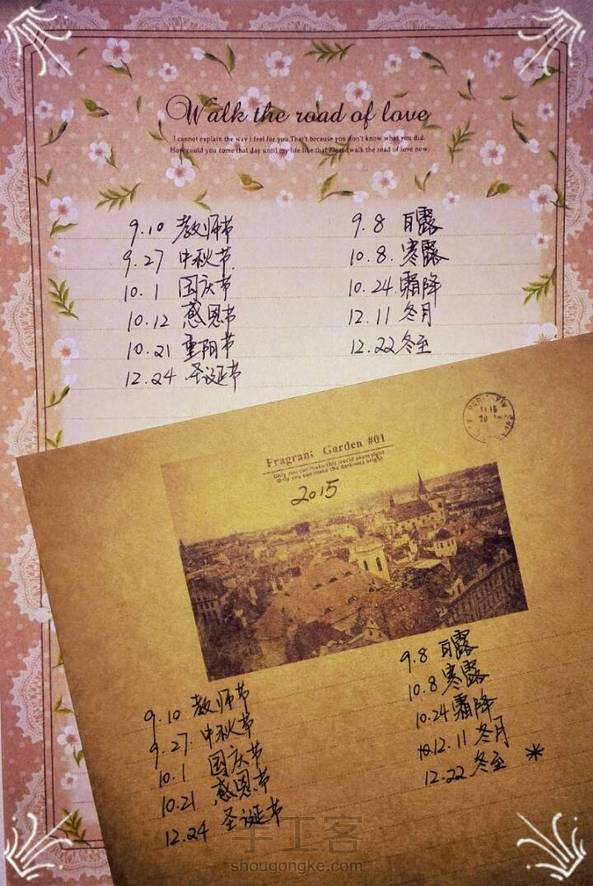 Walk the road of love
I cannot explain the way i feel for you.That's because you don't know what you did.
9.10 教师节
9.27 中秋节
10.1 国庆节
10.12 感恩节
10.21 重阳节
12.24 圣诞节
9.8 白露
10.8. 寒露
10.24 霜降
12.11 冬月
12.22 冬至
Fragrant Garden #01
Only you can make this world seem right
Only you can make the darkness bright
2015
9.10 教师节
9.27 中秋节
10.1 国庆节
10.21 感恩节
12.24 圣诞节
9.8 白露
10.8 寒露
10.24 霜降
12.11 冬月
12.22 冬至
手工客
shougongke.com